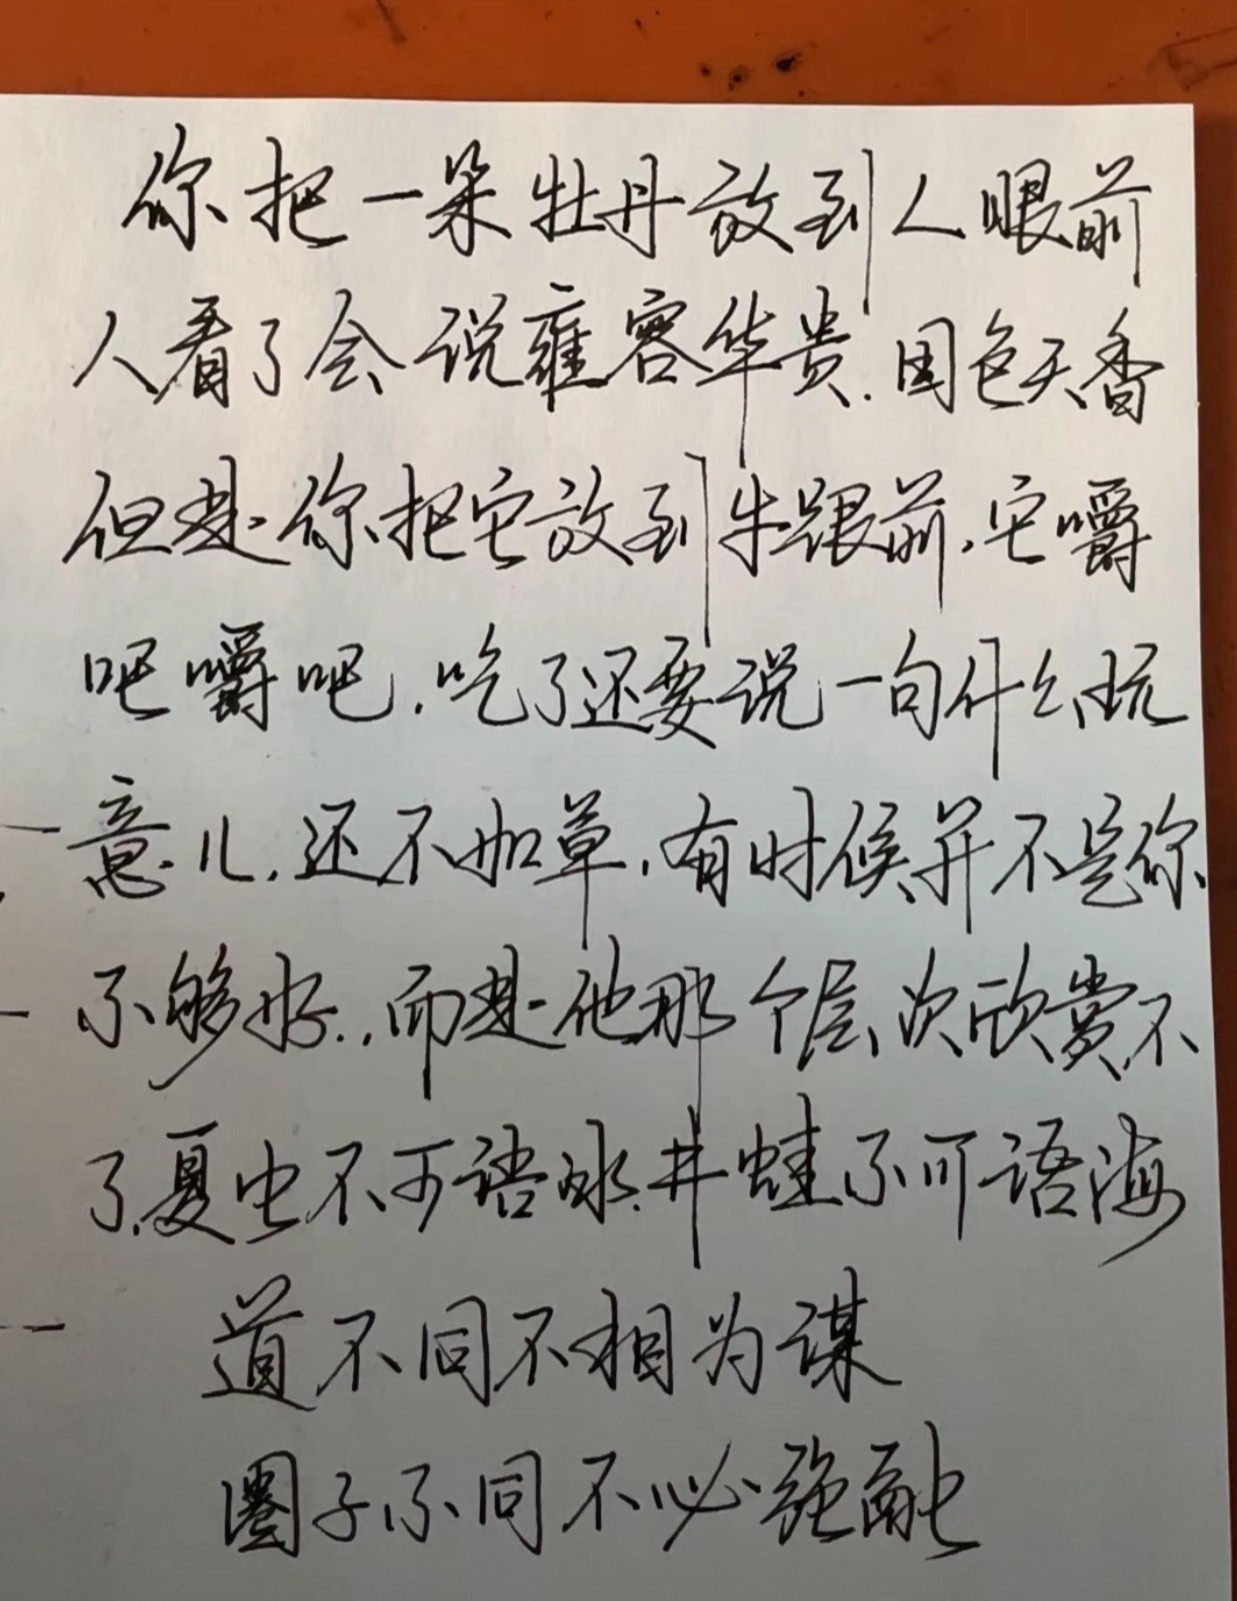 你把一朵牡丹放到人眼前
人看了会说雍容华贵.国色天香
但是你把它放到牛跟前,它嚼
吧嚼吧,吃了还要说一句什么玩
意儿,还不如草,有时候并不是你
不够好.,而是他那个层次欣赏不
了,夏虫不可语冰.井蛙不可语海
道不同不相为谋
圈子不同不必强融